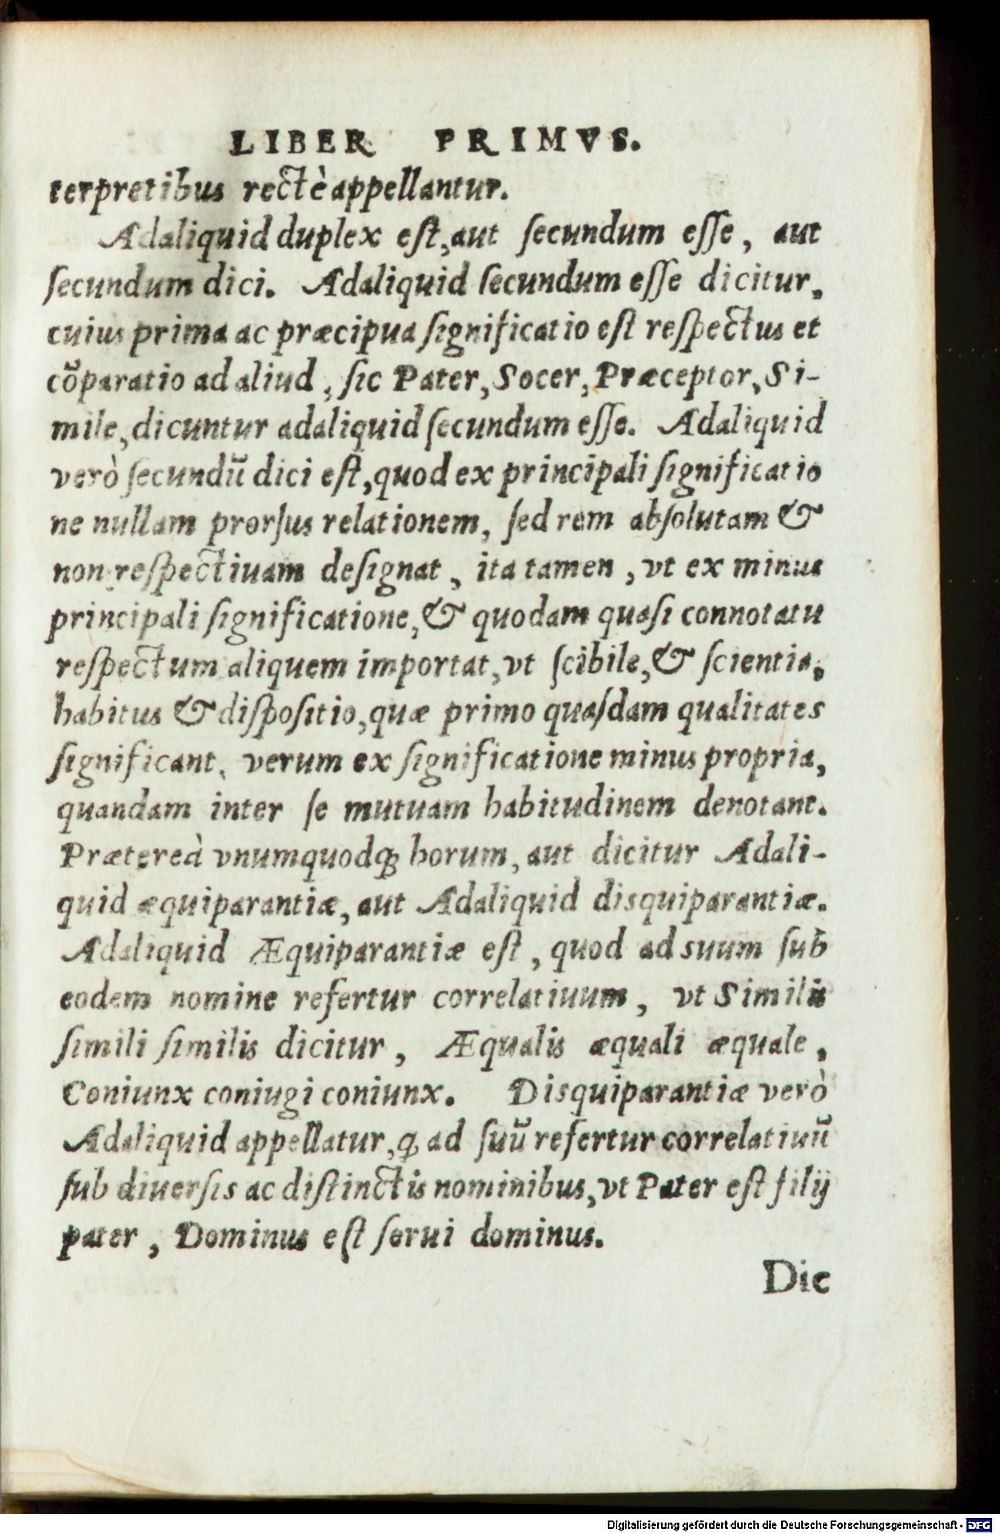 LIBER PRIMVS.
terpretibus rectè appellantur.
Adaliquid duplex eſt, aut ſecundum eſſe, aut
ſecundum dici. Adaliquid ſecundum eſſe dicitur,
cuius prima ac præcipua ſignificatio eſt reſpectus et
cōparatio ad aliud, ſic Pater, Socer, Præceptor, Si-
mile, dicuntur adaliquid ſecundum eſſe. Adaliquid
verò ſecundū dici eſt, quod ex principali ſignificatio
ne nullam prorſus relationem, ſed rem abſolutam &
non reſpectiuam deſignat, ita tamen, vt ex minus
principali ſignificatione, & quodam quaſi connotatu
reſpectum aliquem importat, vt ſcibile, & ſcientia,
habitus & diſpoſitio, quæ primo quaſdam qualitates
ſignificant, verum ex ſignificatione minus propria,
quandam inter ſe mutuam habitudinem denotant.
Prætereà vnumquodq; horum, aut dicitur Adali-
quid æquiparantiæ, aut Adaliquid disquiparantiæ.
Adaliquid Æquiparantiæ eſt, quod ad suum ſub
eodem nomine refertur correlatiuum, vt Similis
ſimili ſimilis dicitur, Æqualis æquali æquale,
Coniunx coniugi coniunx. Disquiparantiæ verò
Adaliquid appellatur, q̃ ad ſuū refertur correlatiuū
ſub diuerſis ac diſtinctis nominibus, vt Pater eſt filij
pater, Dominus eſt ſerui dominus.
Dic
Digitalisierung gefördert durch die Deutsche Forschungsgemeinschaft - DFG